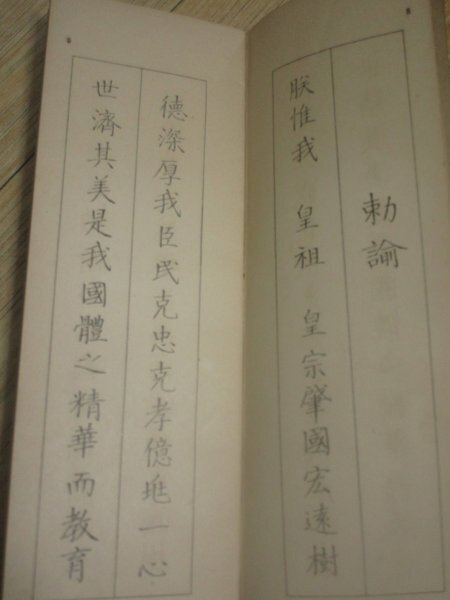 勅諭
朕惟我 皇祖 皇宗肇國宏遠樹
德深厚我臣民克忠克孝億兆一心
世濟其美是我國體之精華而教育